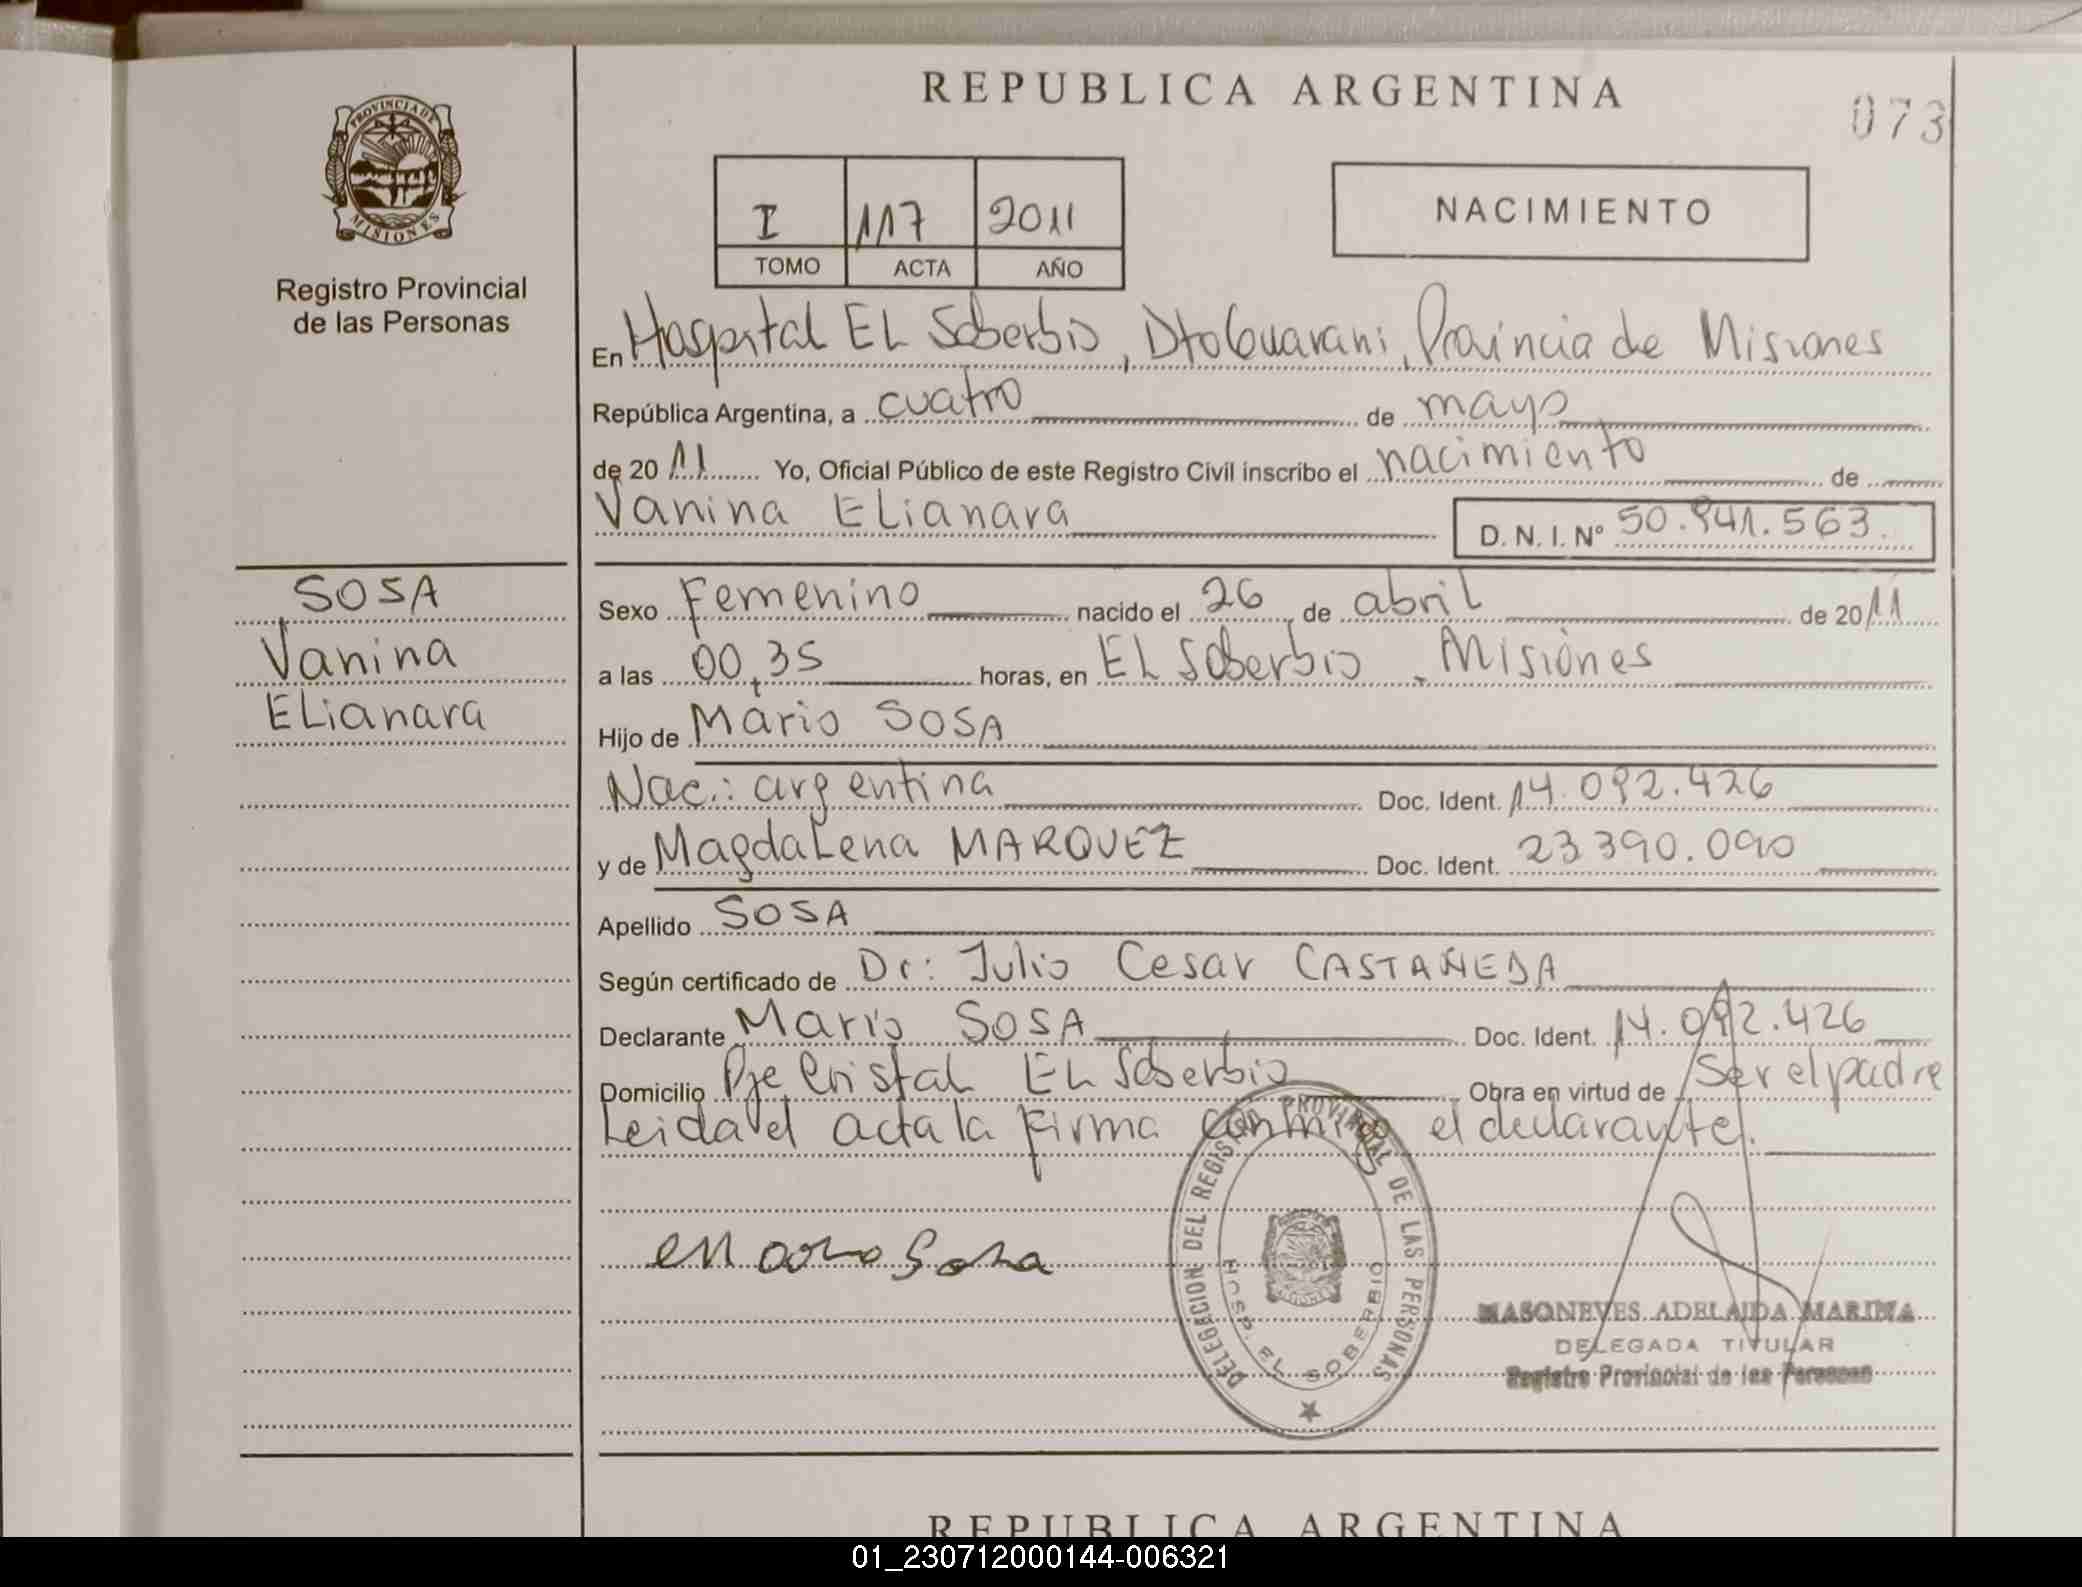 REPUBLICA ARGENTINA
073
PROVINCIA DE
MISIONES
Registro Provincial
de las Personas
I 117 2011
TOMO ACTA AÑO
NACIMIENTO
En Hospital EL Soberbio, Dto Guarani, Provincia de Misiones
República Argentina, a cuatro de mayo
de 2011 Yo, Oficial Público de este Registro Civil inscribo el nacimiento de
Vanina ELianara
D. N. I. Nº 50.941.563.
SOSA
Vanina
ELianara
Sexo Femenino nacido el 26 de abril de 2011
a las 00,35 horas, en EL Soberbio, Misiones
Hijo de Mario SOSA
Nac.: argentina Doc. Ident. 14.092.426
y de MagdaLena MARQUEZ Doc. Ident. 23390.090
Apellido SOSA
Según certificado de Dr: Julio Cesar CASTAÑEDA
Declarante Mario SOSA Doc. Ident. 14.092.426
Domicilio Pje Cristal EL Soberbio Obra en virtud de Ser el padre
Leida el acta la firma conmigo el declarante.
Mario Sosa
DELEGACION DEL REGISTRO PROVINCIAL DE LAS PERSONAS
HOSP. EL SOBERBIO
MASONEVES ADELAIDA MARINA
DELEGADA TITULAR
Registro Provincial de las Personas
REPUBLICA ARGENTINA
01_230712000144-006321